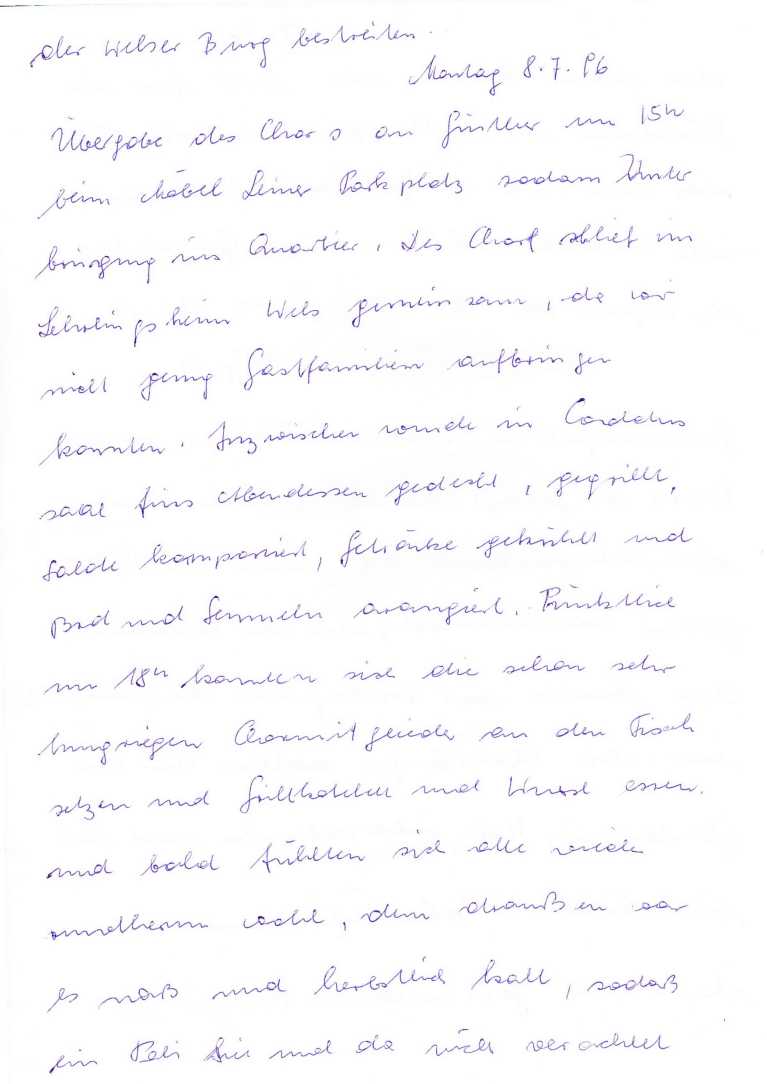 der Welser Burg bestreiten.
Montag 8.7.96
Übergabe des Chors an Günther um 15h
beim Möbel Leiner Parkplatz sodann Unter
bringung ins Quartier. Der Chor schlief im
Lehrlingsheim Wels gemeinsam, da wir
nicht genug Gastfamilien aufbringen
konnten. Inzwischen wurde im Cordatus
saal fürs Abendessen gedeckt, gegrillt,
Salate komponiert, Getränke gekühlt und
Brot und Semmeln arangiert. Pünktlich
um 18h konnten sich die schon sehr
hungrigen Chormitglieder an den Tisch
setzen und Grillkotelett und Wurst essen.
und bald fühlten sich alle wieder
rundherum wohl, denn draußen war
es naß und herbstlich kalt, sodaß
ein Pulli hie und da nicht verachtet